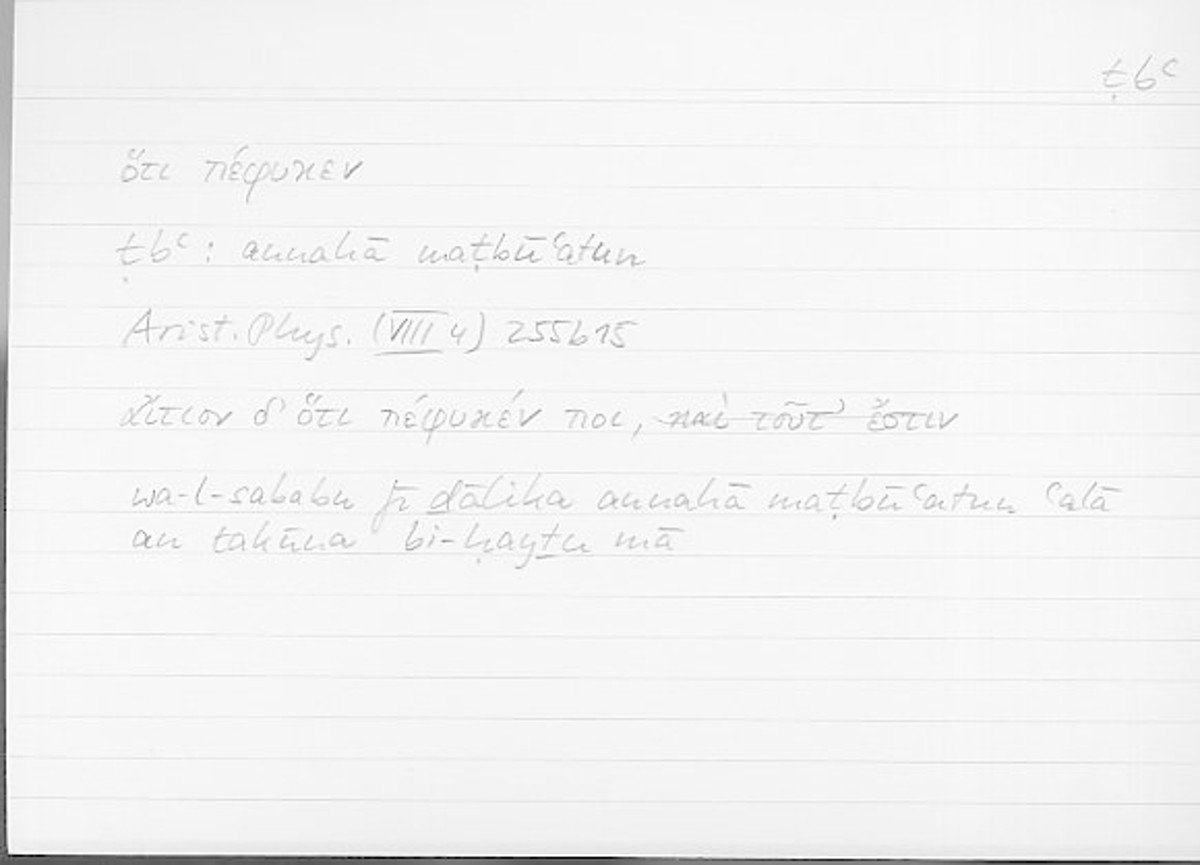 ṭbʿ
ὅτι πέφυκεν
ṭbʿ : annahā maṭbūʿatun
Arist. Phys. (VIII 4) 255b15
αἴτιον δ' ὅτι πέφυκέν ποι, καὶ τοῦτ' ἔστιν
wa-l-sababu fī ḏālika annahā maṭbūʿatun ʿalā
an takūna bi-ḥayṯu mā